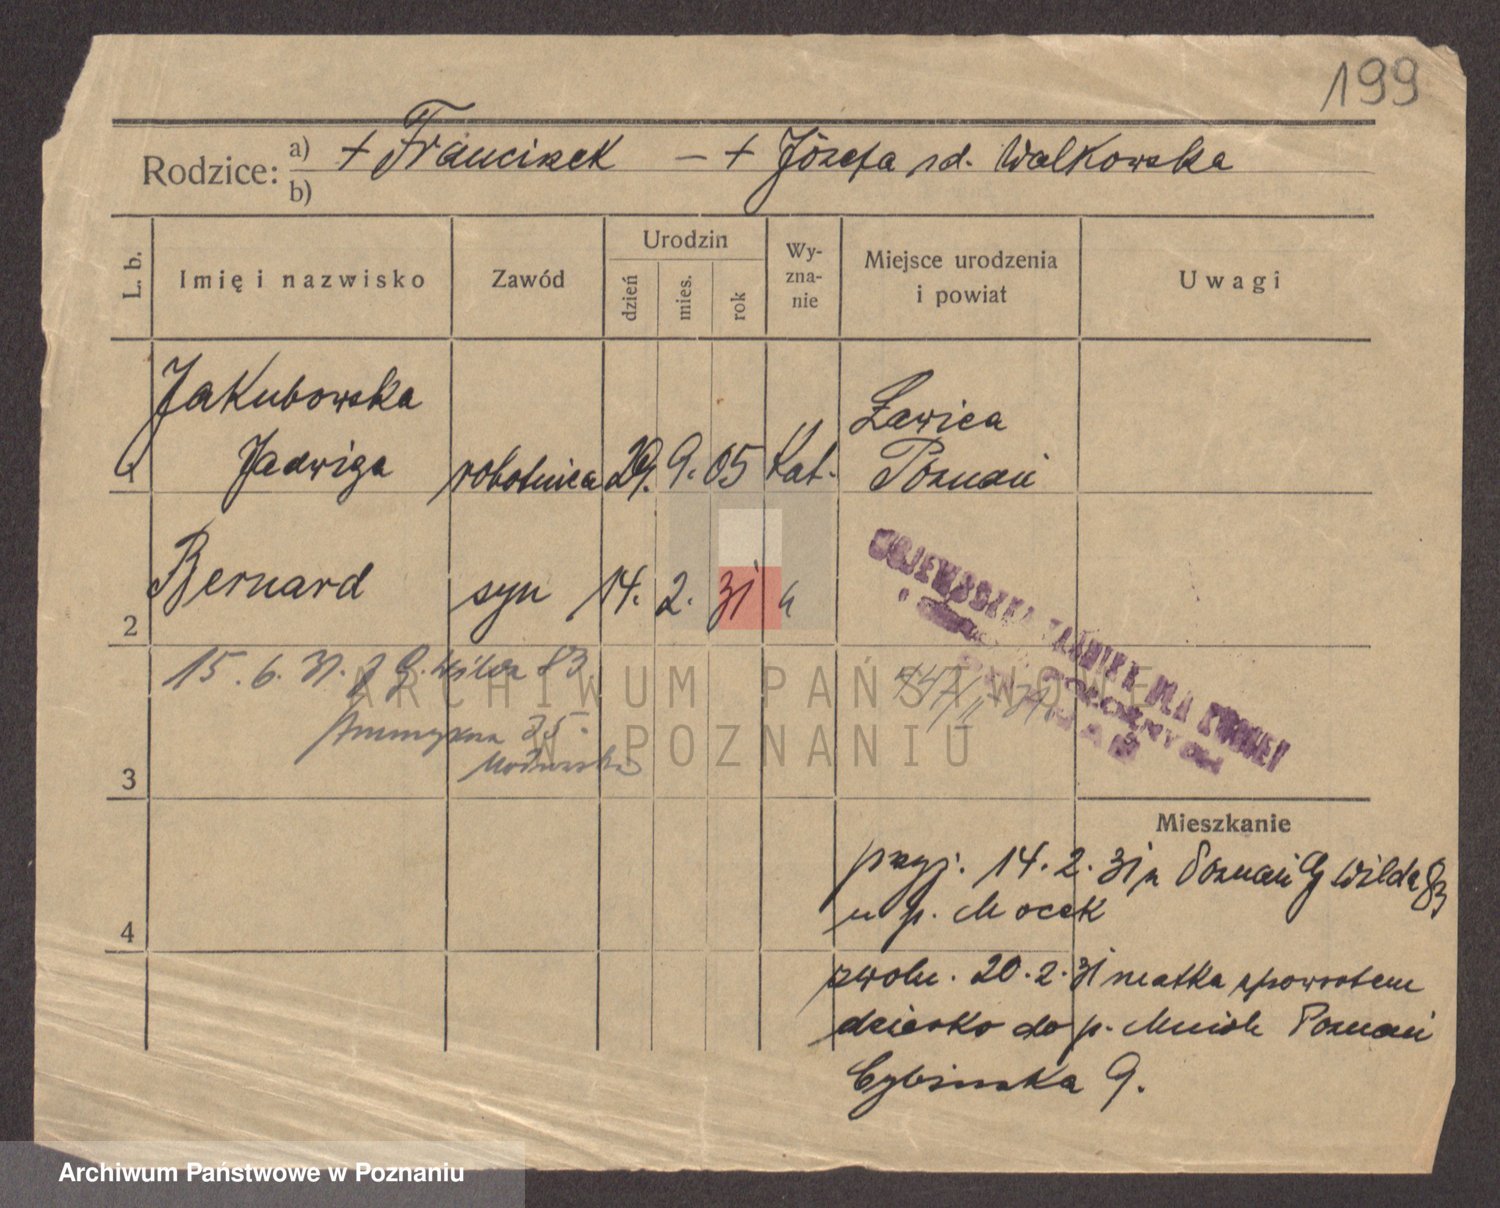 199
Rodzice: a) + Franciszek — + Józefa rd. Walkowska
b)
L. b.
Imię i nazwisko
Zawód
Urodzin
dzień
mies.
rok
Wy-
zna-
nie
Miejsce urodzenia
i powiat
Uwagi
1 Jakubowska
Jadwiga robotnica 29. 9. 05 Kat.
Ławica
Poznań
2 Bernard syn 14. 2. 31 "
WOJEWÓDZKA KLINIKA DLA KOBIET
15. 6. 31. G. Wilda 83
35.
3
ARCHIWUM PAŃSTWOWE
W POZNANIU
Mieszkanie
przyj. 14. 2. 31 z Poznań G Wilda 83
u p. Mocek
4
zwoln. 20. 2. 31 matka zpowrotem
dziecko do p. Poznań
Cybińska 9.
Archiwum Państwowe w Poznaniu